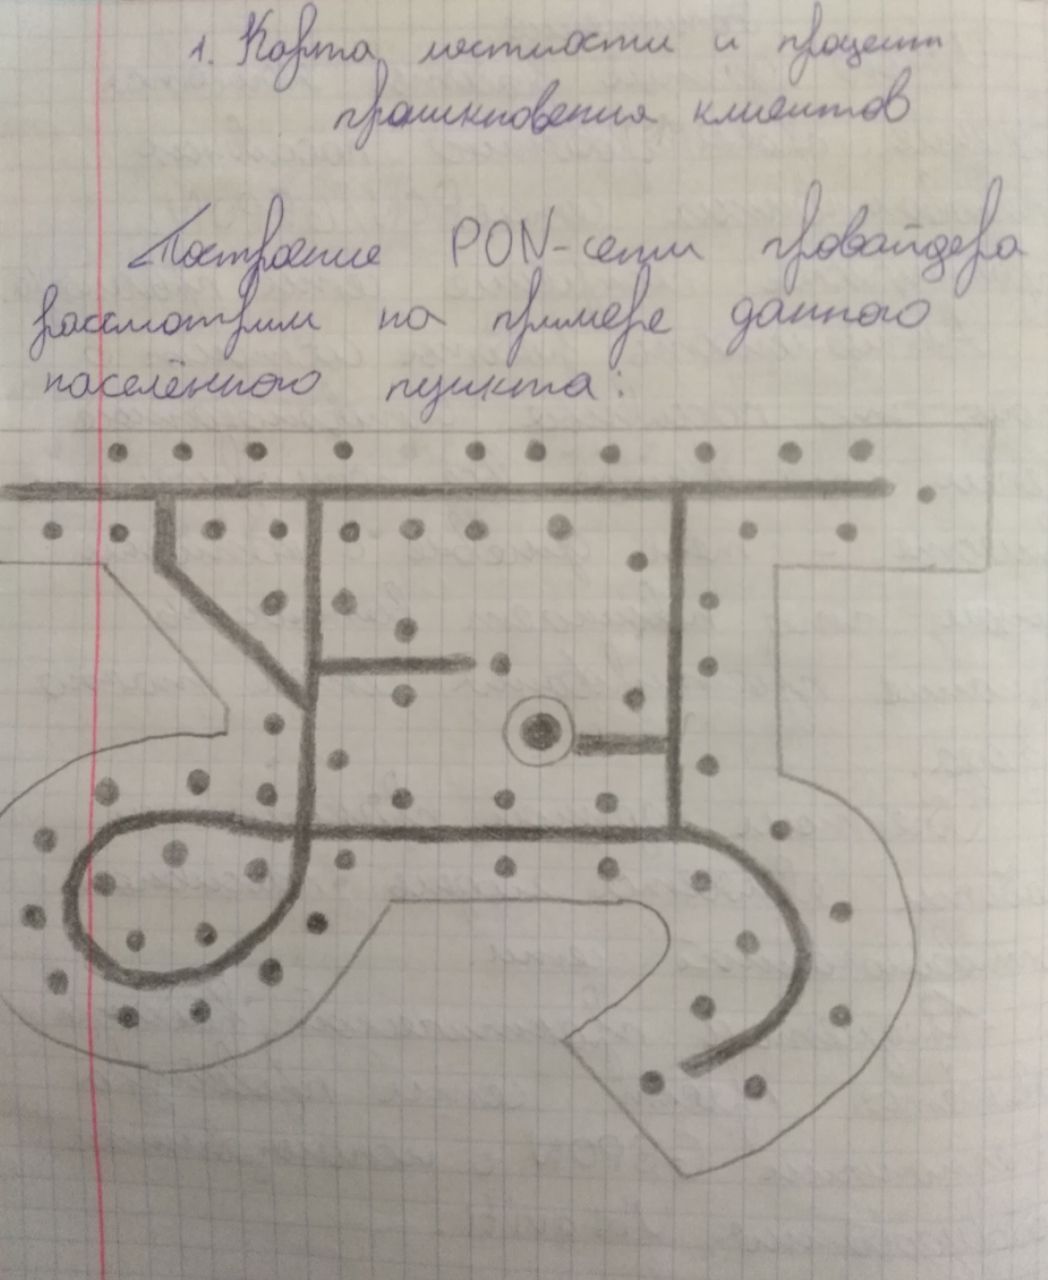 1. Карта местности и процент
проникновения клиентов
Построение PON-сети провайдера
рассмотрим на примере данного
населённого пункта: